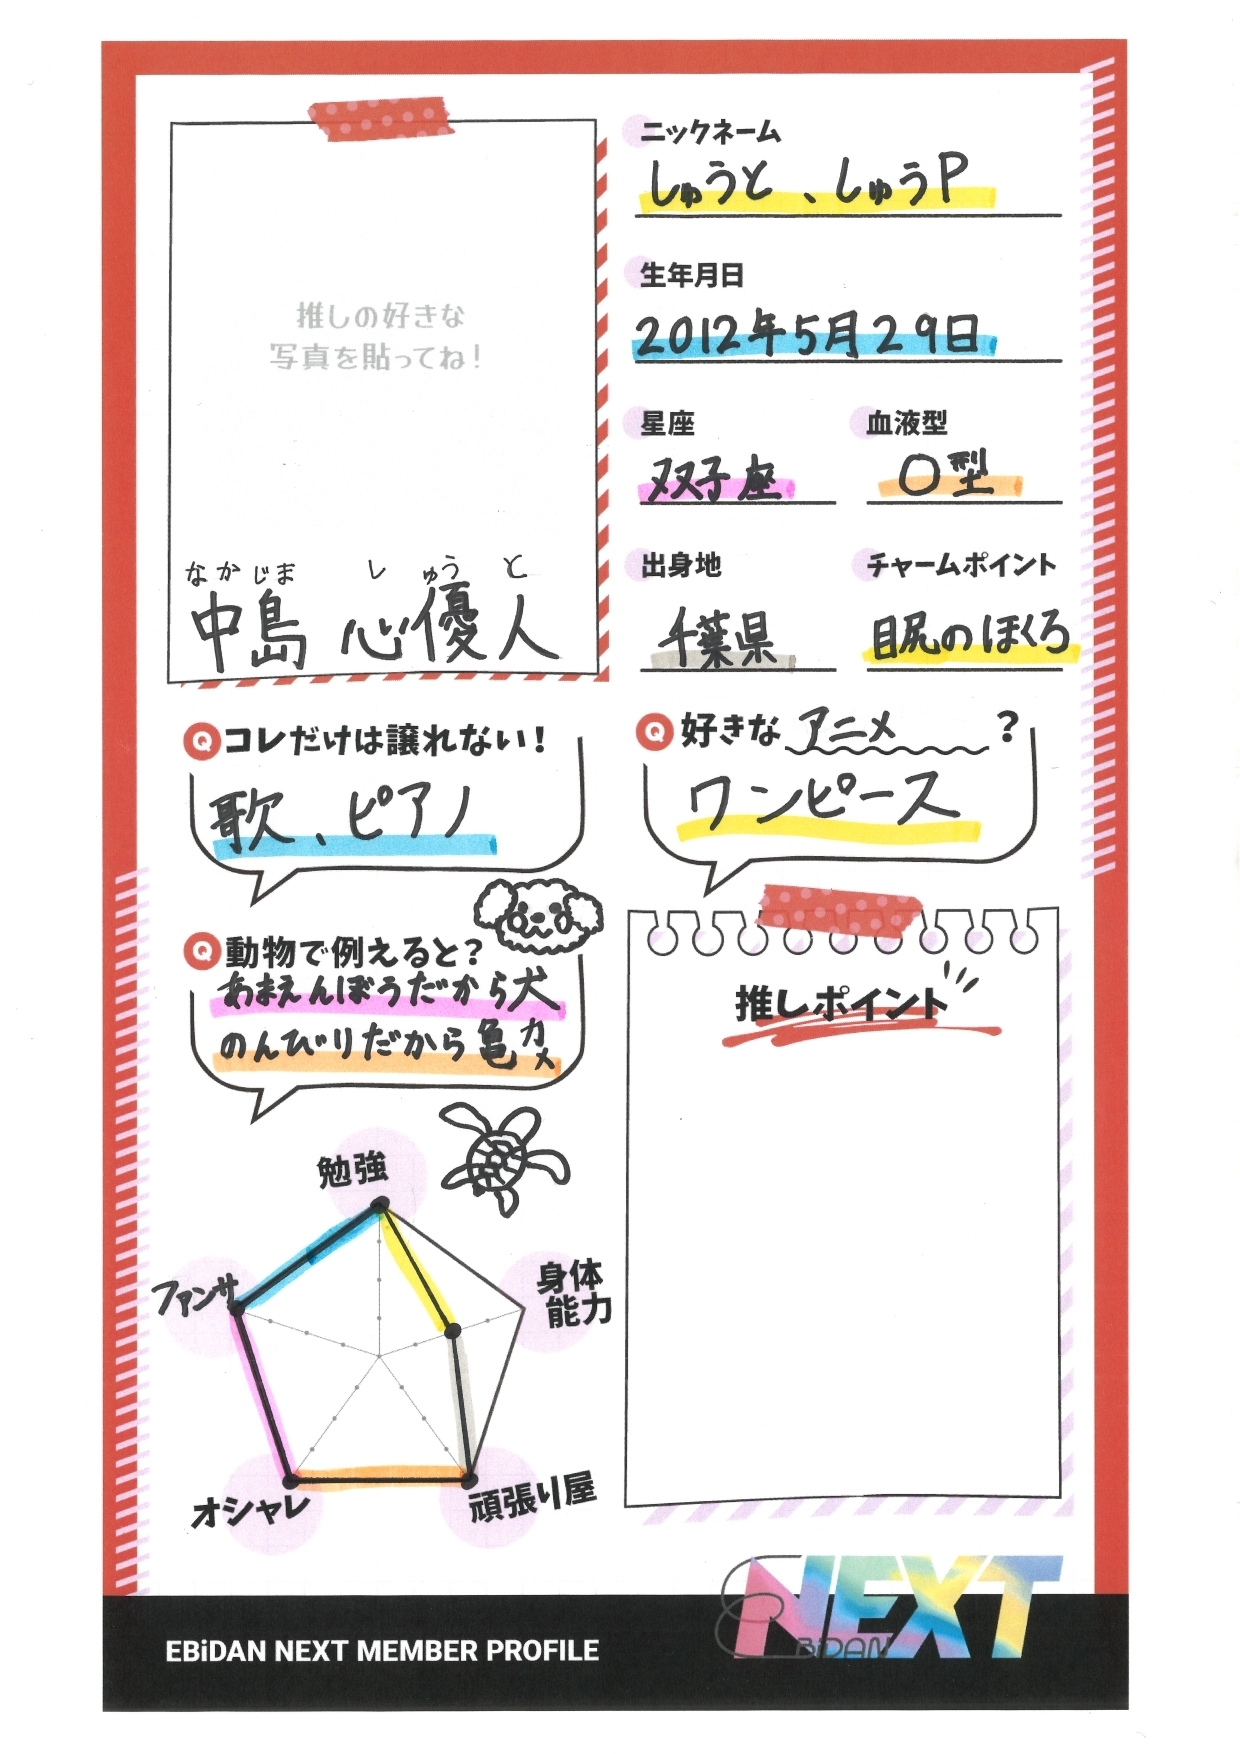 推しの好きな
写真を貼ってね！
なかじま しゅうと
中島 心優人
ニックネーム
しゅうと、しゅうP
生年月日
2012年5月29日
星座
双子座
血液型
O型
出身地
千葉県
チャームポイント
目尻のほくろ
Q コレだけは譲れない！
歌、ピアノ
Q 好きな アニメ ？
ワンピース
Q 動物で例えると？
あまえんぼうだから犬
のんびりだから亀 カメ
推しポイント
勉強
ファンサ
身体
能力
オシャレ
頑張り屋
EBiDAN NEXT MEMBER PROFILE
EBiDAN NEXT